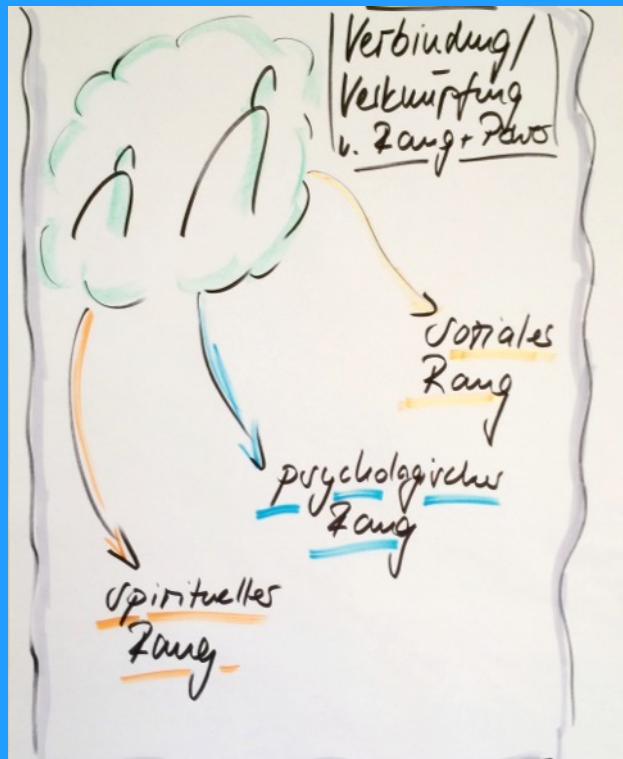 Verbindung/
Verknüpfung
v. Rang + Power
soziales
Rang
psychologischer
Rang
spiritueller
Rang